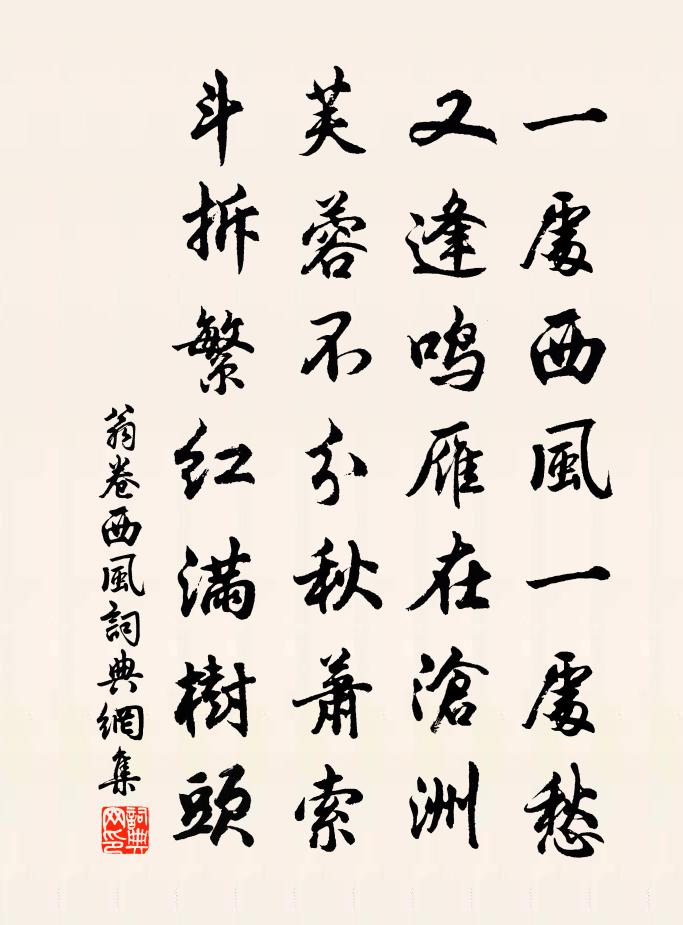 一處西風一處愁
又逢鳴雁在滄洲
芙蓉不分秋蕭索
斗拆繁紅滿樹頭
翁卷西風詞典網集
詞典
网印